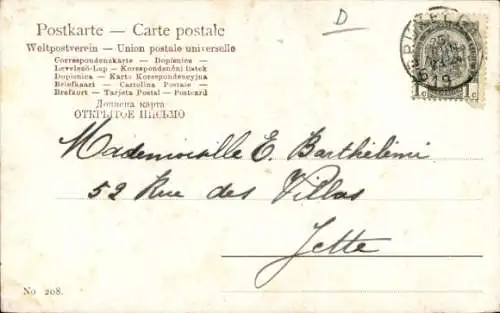 D
Postkarte — Carte postale
Weltpostverein — Union postale universelle
Correspondenzkarte — Dopisnice —
Levelező-Lap — Korespondenční lístek
Dopisnica — Karta Korespondencyjna
Briefkaart — Cartolina Postale —
Brefkort — Tarjeta Postal — Postcard
Дописна карта
ОТКРЫТОЕ ПИСЬМО
1c 1c
Mademoiselle E. Barthélémi
52 Rue des Villas
Jette
No 208.